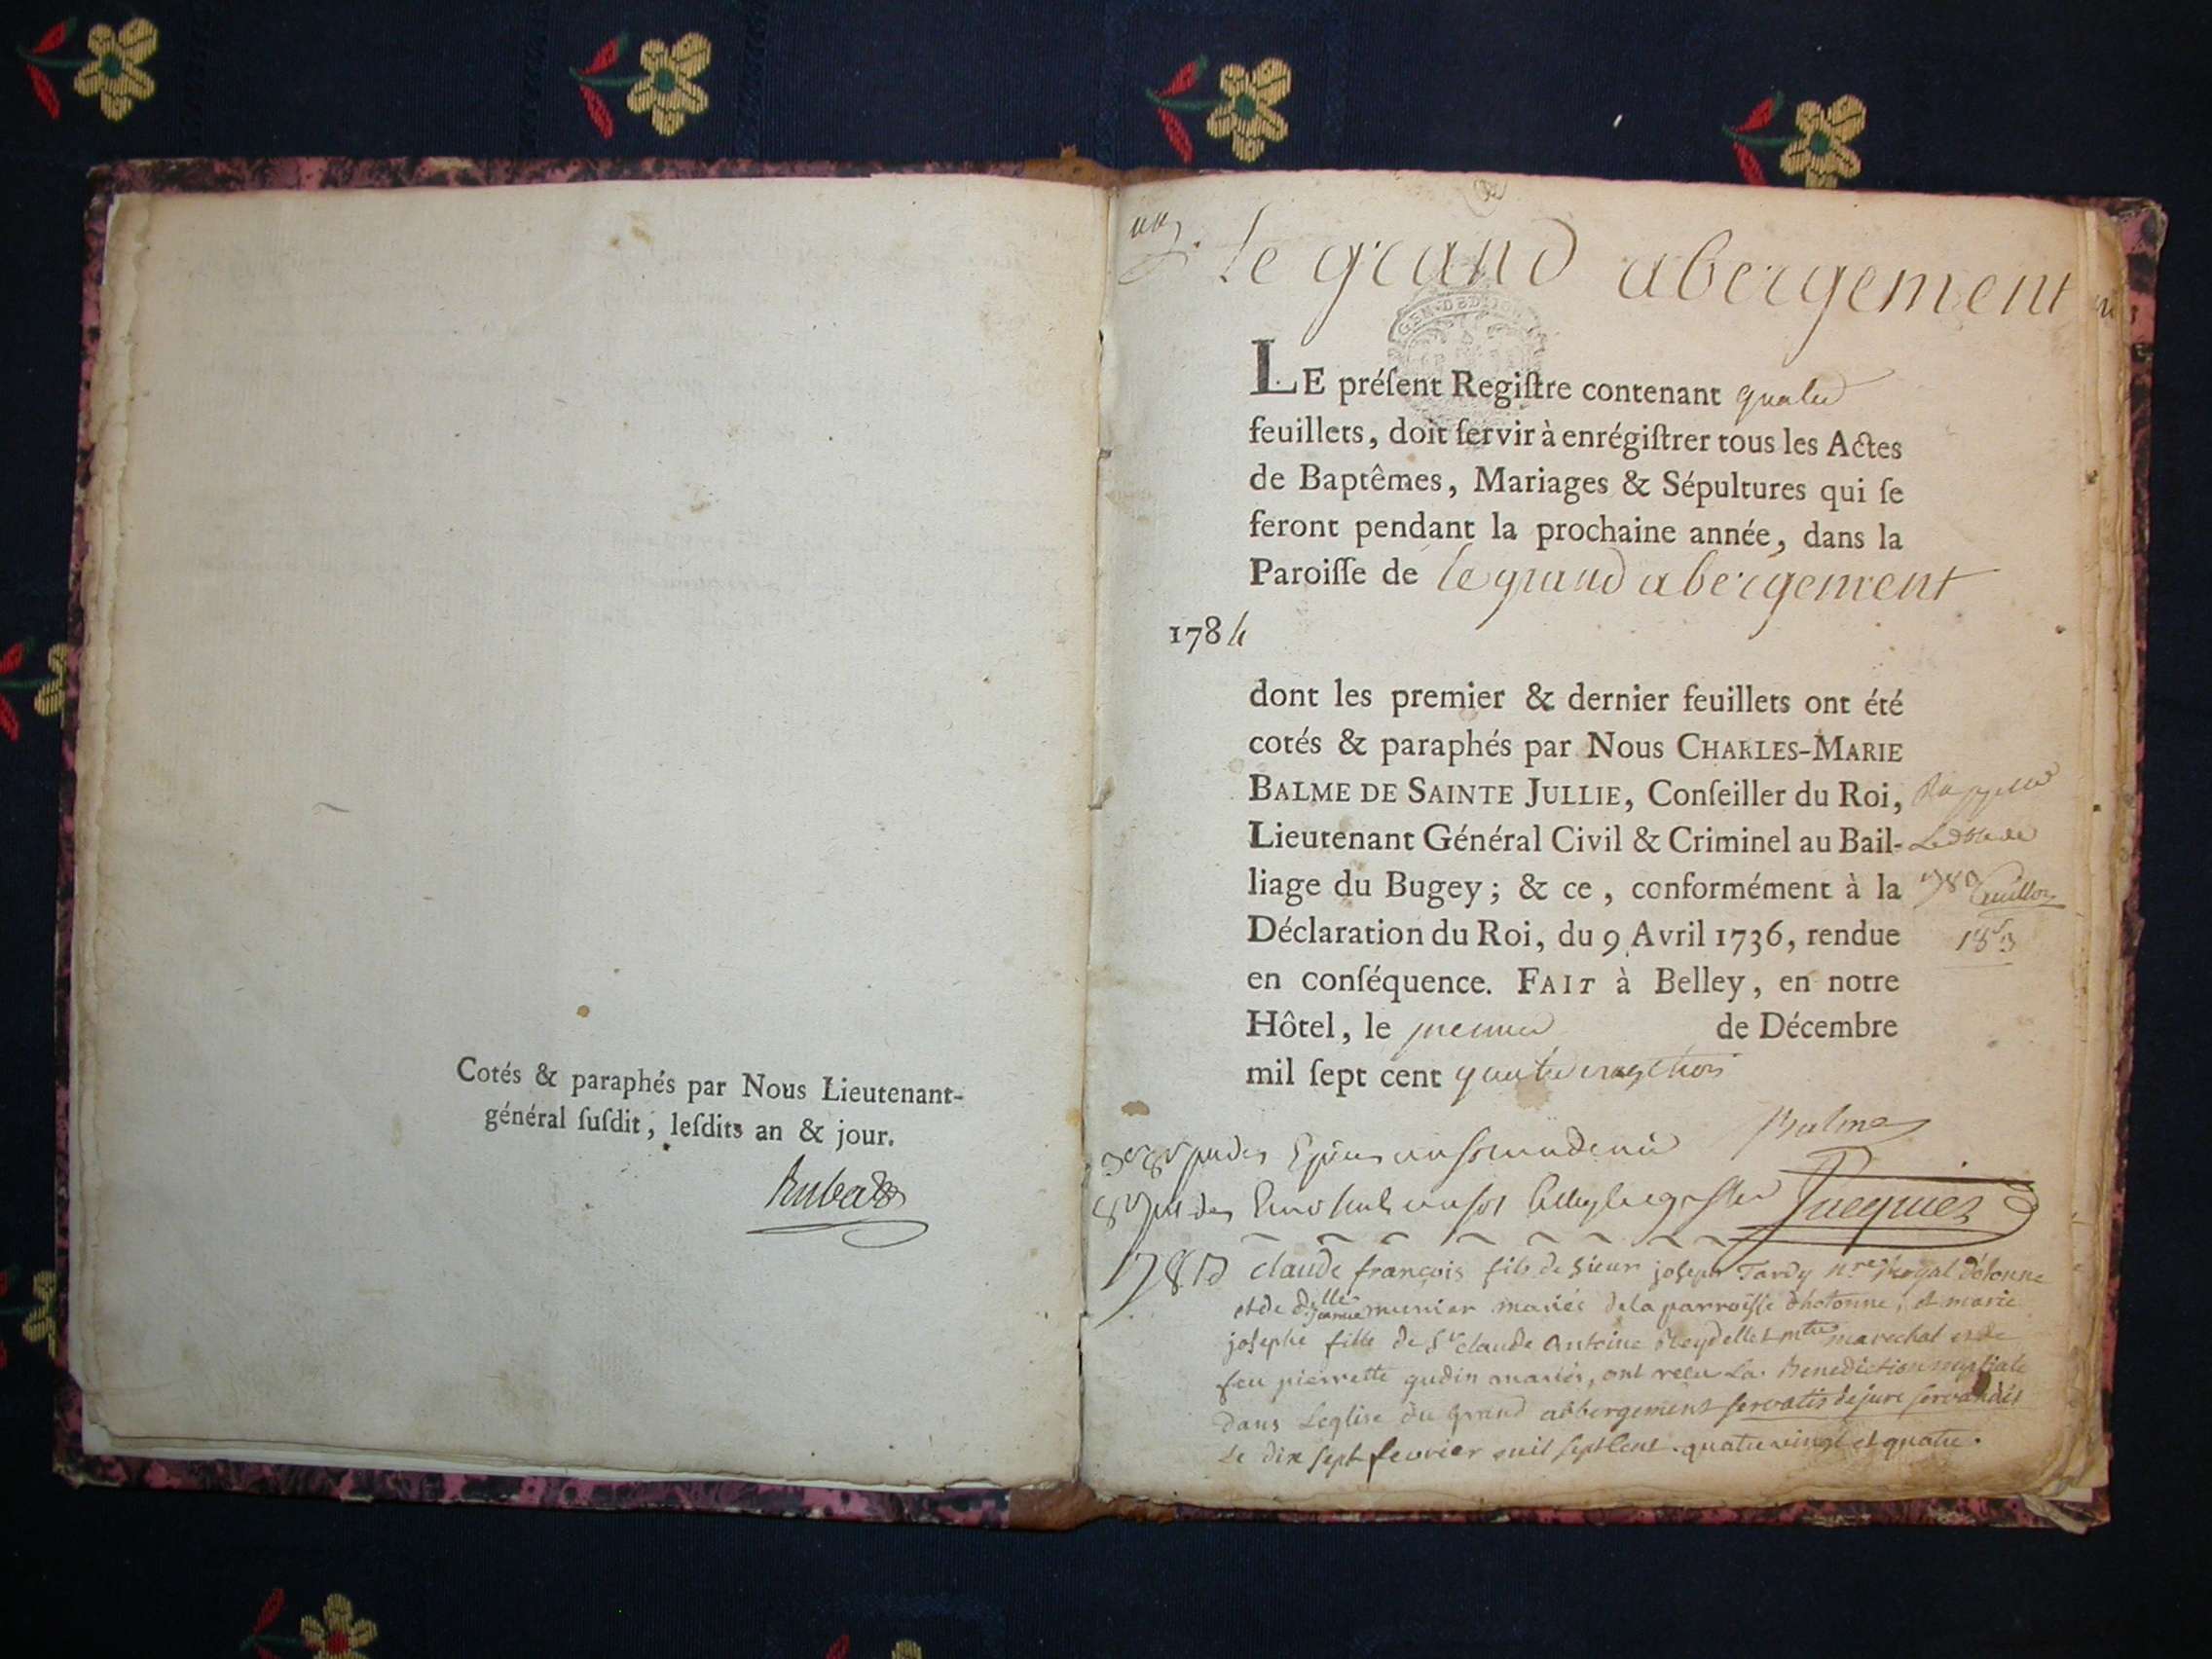 Cotés & paraphés par Nous Lieutenant-
général ſuſdit, leſdits an & jour.
le grand abergement
LE préſent Regiſtre contenant quatre
feuillets, doit ſervir à enrégiſtrer tous les Actes
de Baptêmes, Mariages & Sépultures qui ſe
feront pendant la prochaine année, dans la
Paroiſſe de le grand abergement
1784
dont les premier & dernier feuillets ont été
cotés & paraphés par Nous CHARLES-MARIE
BALME DE SAINTE JULLIE, Conſeiller du Roi,
Lieutenant Général Civil & Criminel au Bail-
liage du Bugey; & ce, conformément à la
Déclaration du Roi, du 9 Avril 1736, rendue
en conſéquence. FAIT à Belley, en notre
Hôtel, le premier de Décembre
mil ſept cent quatre vingt trois
Balme
Jacquier
claude françois fils de sieur joseph Tardy nre Royal
et de dlle jeanne munier mariés de la parroisse d'hotonne, et marie
josephe fille de Sr claude Antoine Reydellet marechal et de
feu pierrette gudin mariés, ont recu La Benediction nuptiale
dans Leglise du grand abbergement servatis de jure servandis
Le dix sept fevrier mil sept cent quatre vingt et quatre.